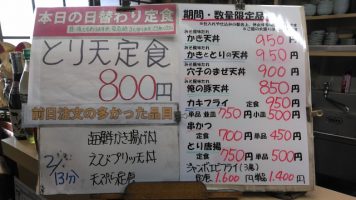 本日の日替わり定食
とり天定食
800円
前日注文の多かった品目
海鮮かき揚げ丼
えびプリッと丼
天ぷら定食
期間・数量限定品
みそ風味だれ
かき天丼 950円
みそ風味だれ
かきととりの天丼 950円
みそ風味だれ
穴子のまぜ天丼 900円
みそ風味だれ
俺の豚天丼 850円
カキフライ 定食 950円
単品 並皿 750円 小皿 500円
串かつ 定食 700円 単品 450円
とり唐揚 定食 750円 単品 500円
ジャンボエビフライ(3尾)
定食 1,600円 単品 1,400円